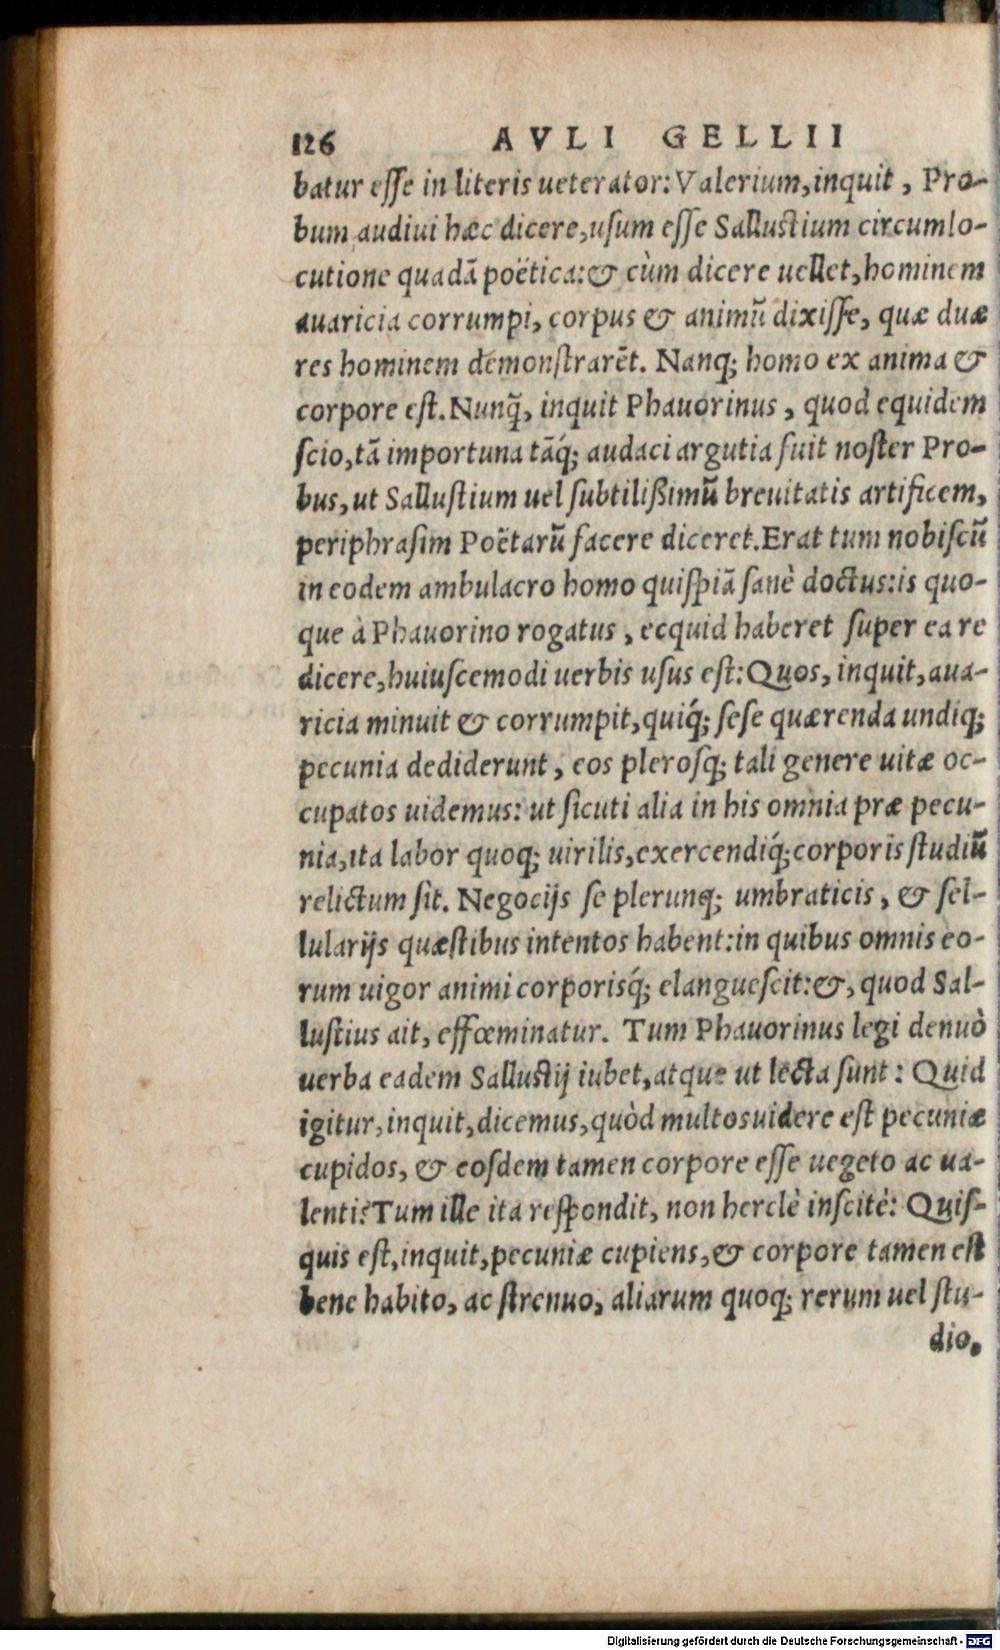 126 AVLI GELLII
batur eſſe in literis ueterator: Valerium, inquit, Pro-
bum audiui hæc dicere, uſum eſſe Salluſtium circumlo-
cutione quadã poëtica: & cùm dicere uellet, hominem
auaricia corrumpi, corpus & animũ dixiſſe, quæ duæ
res hominem demonſtrarẽt. Nanq; homo ex anima &
corpore eſt. Nunq̃, inquit Phauorinus, quod equidem
ſcio, tã importuna tãq́; audaci argutia fuit noſter Pro-
bus, ut Salluſtium uel ſubtilißimũ breuitatis artificem,
periphraſim Poëtarũ facere diceret. Erat tum nobiſcũ
in eodem ambulacro homo quiſpiã ſanè doctus: is quo-
que à Phauorino rogatus, ecquid haberet ſuper ea re
dicere, huiuſcemodi uerbis uſus eſt: Quos, inquit, aua-
ricia minuit & corrumpit, quiq́; ſeſe quærenda undiq;
pecunia dediderunt, eos pleroſq; tali genere uitæ oc-
cupatos uidemus: ut ſicuti alia in his omnia præ pecu-
nia, ita labor quoq; uirilis, exercendiq́; corporis ſtudiũ
relictum ſit. Negocijs ſe plerunq; umbraticis, & ſel-
lularijs quæſtibus intentos habent: in quibus omnis eo-
rum uigor animi corporisq́; elangueſcit: &, quod Sal-
luſtius ait, effœminatur. Tum Phauorinus legi denuò
uerba eadem Salluſtij iubet, atque ut lecta ſunt: Quid
igitur, inquit, dicemus, quòd multos uidere eſt pecuniæ
cupidos, & eoſdem tamen corpore eſſe uegeto ac ua-
lenti? Tum ille ita reſpondit, non herclè inſcitè: Quiſ-
quis eſt, inquit, pecuniæ cupiens, & corpore tamen eſt
bene habito, ac ſtrenuo, aliarum quoq; rerum uel ſtu-
dio,
Digitalisierung gefördert durch die Deutsche Forschungsgemeinschaft - DFG